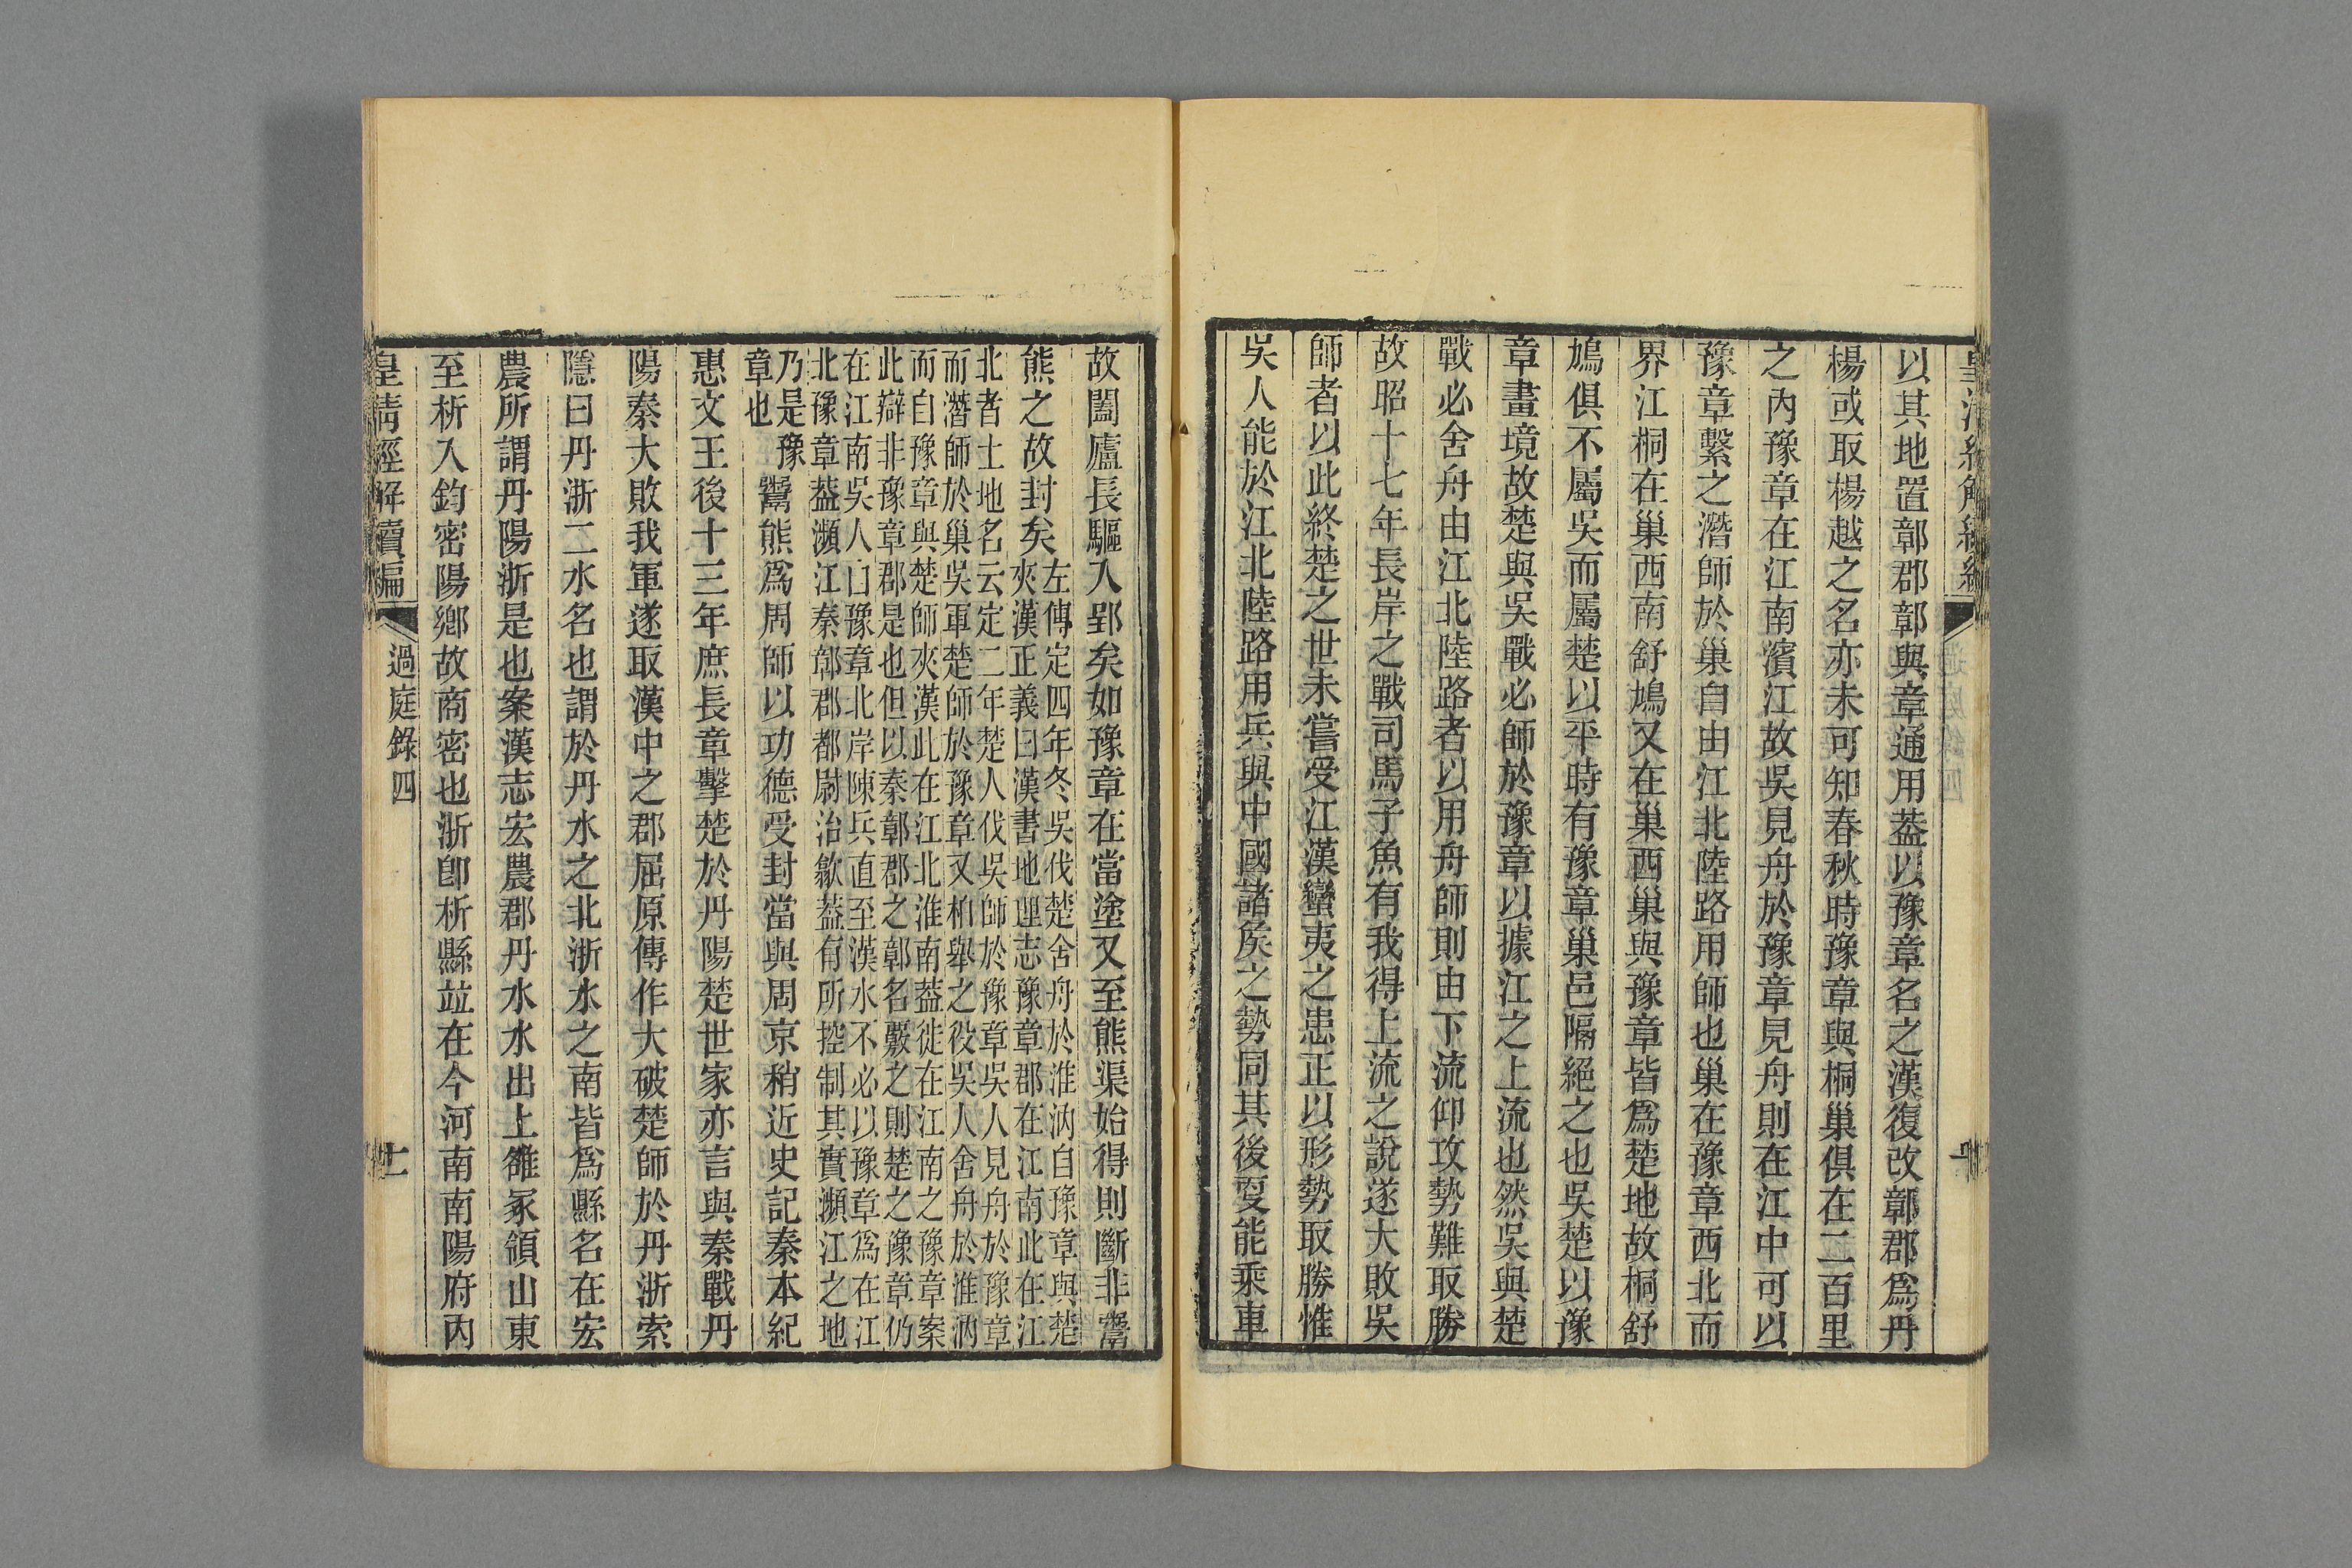 以其地置鄣郡鄣與章通用葢以豫章名之漢復改鄣郡爲丹
楊或取楊越之名亦未可知春秋時豫章與桐巢俱在二百里
之內豫章在江南濱江故吳見舟於豫章見舟則在江中可以
豫章繫之潛師於巢自由江北陸路用師也巢在豫章西北而
界江桐在巢西南舒鳩又在巢西巢與豫章皆爲楚地故桐舒
鳩俱不屬吳而屬楚以平時有豫章巢邑隔絕之也吳楚以豫
章畫境故楚與吳戰必師於豫章以據江之上流也然吳與楚
戰必舍舟由江北陸路者以用舟師則由下流仰攻勢難取勝
故昭十七年長岸之戰司馬子魚有我得上流之說遂大敗吳
師者以此終楚之世未嘗受江漢蠻夷之患正以形勢取勝惟
吳人能於江北陸路用兵與中國諸矦之勢同其後叓能乘車
故闔廬長驅入郢矣如豫章在當塗又至熊渠始得則斷非鬻
熊之故封矣左傳定四年冬吳伐楚舍舟於淮汭自豫章與楚
夾漢正義曰漢書地理志豫章郡在江南此在江
北者土地名云定二年楚人伐吳師於豫章吳人見舟於豫章
而潛師於巢吳軍楚師於豫章又柏舉之役吳人舍舟於淮汭
而自豫章與楚師夾漢此在江北淮南葢徙在江南之豫章案
此辯非豫章郡是也但以秦鄣郡之鄣名覈之則楚之豫章仍
在江南吳人由豫章北岸陳兵直至漢水不必以豫章爲在江
北豫章葢瀕江秦鄣郡都尉治歙葢有所控制其實瀕江之地
乃是豫
章也鬻熊爲周師以功德受封當與周京稍近史記秦本紀
惠文王後十三年庶長章擊楚於丹陽楚世家亦言與秦戰丹
陽秦大敗我軍遂取漢中之郡屈原傳作大破楚師於丹浙索
隱曰丹浙二水名也謂於丹水之北浙水之南皆爲縣名在宏
農所謂丹陽浙是也案漢志宏農郡丹水水出上雒冢領山東
至析入鈞密陽鄉故商密也浙卽析縣竝在今河南南陽府內
皇清經解續編
過庭錄四
十一